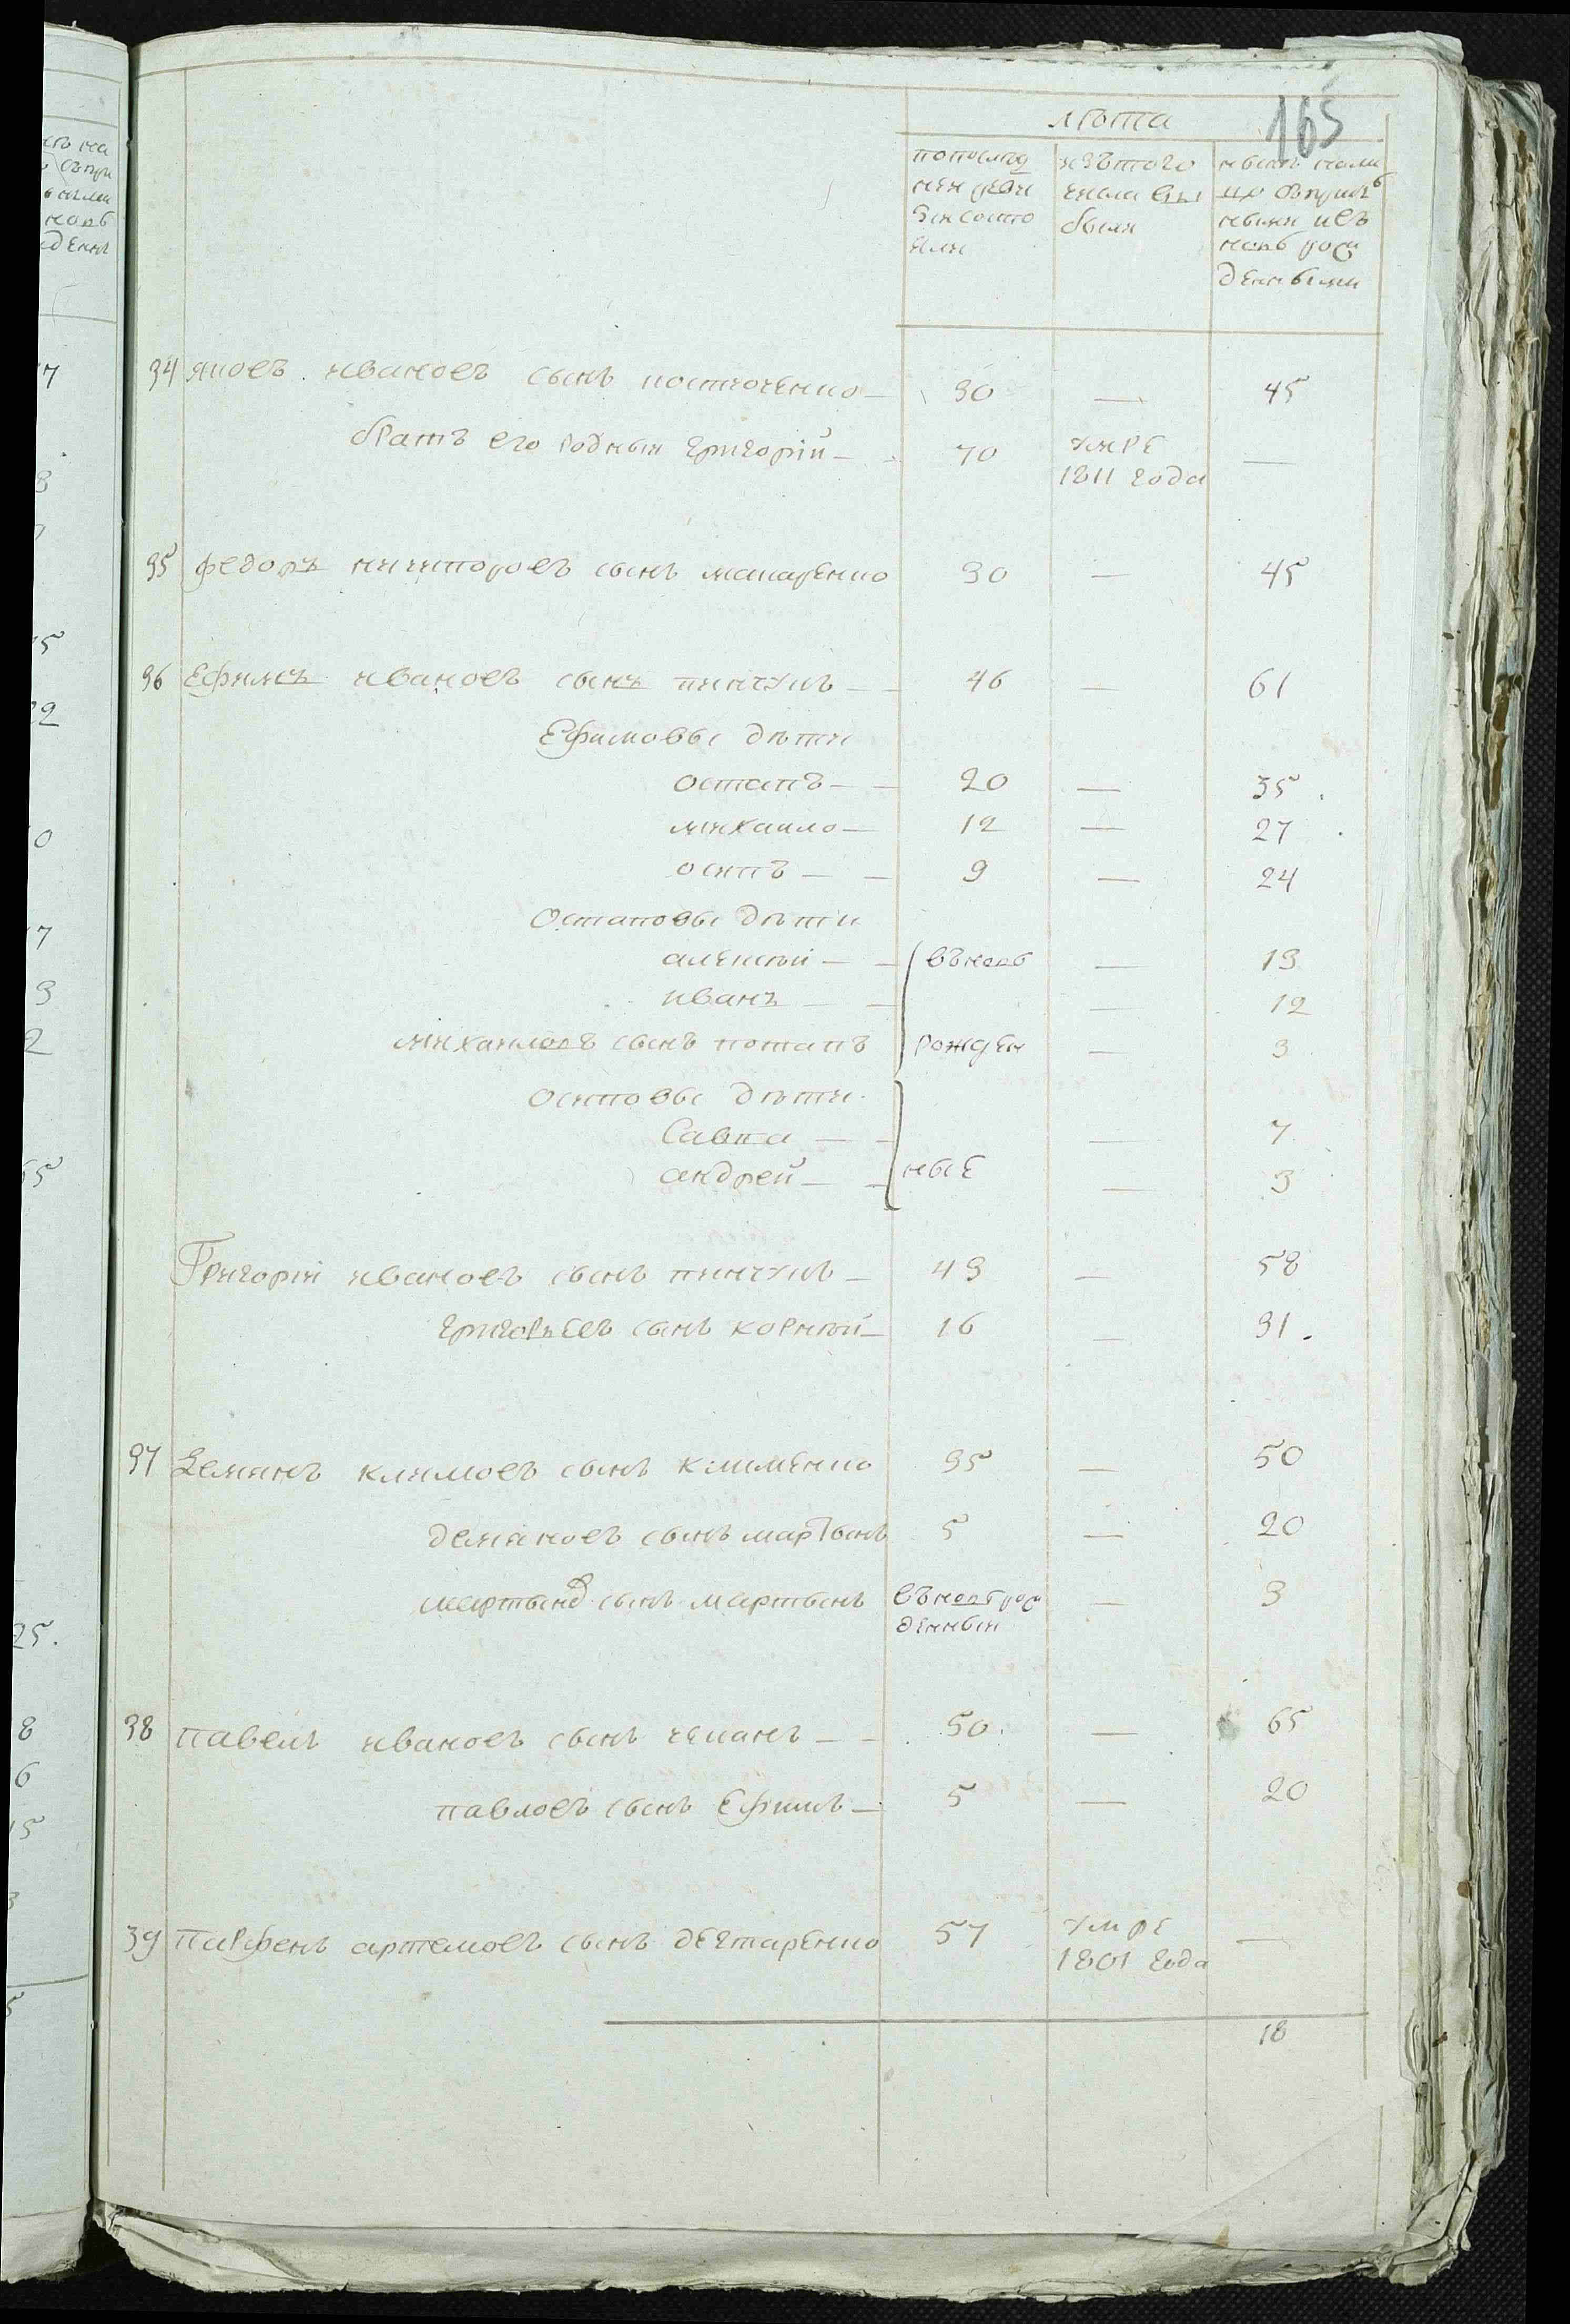 165
лѣта
попослѣд
ней реви
зіи состо
яли
изътого
числа вы
были
нынѣ нали
цо съприбы
ными исъ
новъ рож
денными
34 яковъ ивановъ сынъ костюченко — 30 — 45
братъ его родныи григорій — 70 умре —
1811 года
35 федоръ никипоровъ сынъ макаренко 30 — 45
36 Ефимъ ивановъ сынъ пинчукъ — 46 — 61
Ефимовы дѣти
остапъ — 20 — 35
михаило — 12 — 27
осипъ — 9 — 24
Остаповы дѣти
алексѣй — вновь — 13
иванъ — — 12
михаиловъ сынъ потапъ рожден — 3
осиповы дѣти
Савка — — 7
андрей — ные — 3
Григорій ивановъ сынъ пинчукъ — 43 — 58
григорьевъ сынъ корнѣй — 16 — 31
37 Демянъ климовъ сынъ клименко 35 — 50
демяновъ сынъ мартынъ 5 — 20
мартыновъ сынъ мартынъ въновь рож — 3
денныи
38 павелъ ивановъ сынъ чепакъ — 50 — 65
павловъ сынъ Ефимъ — 5 — 20
39 парфенъ артемовъ сынъ дегтаренко 57 умре —
1801 года
18